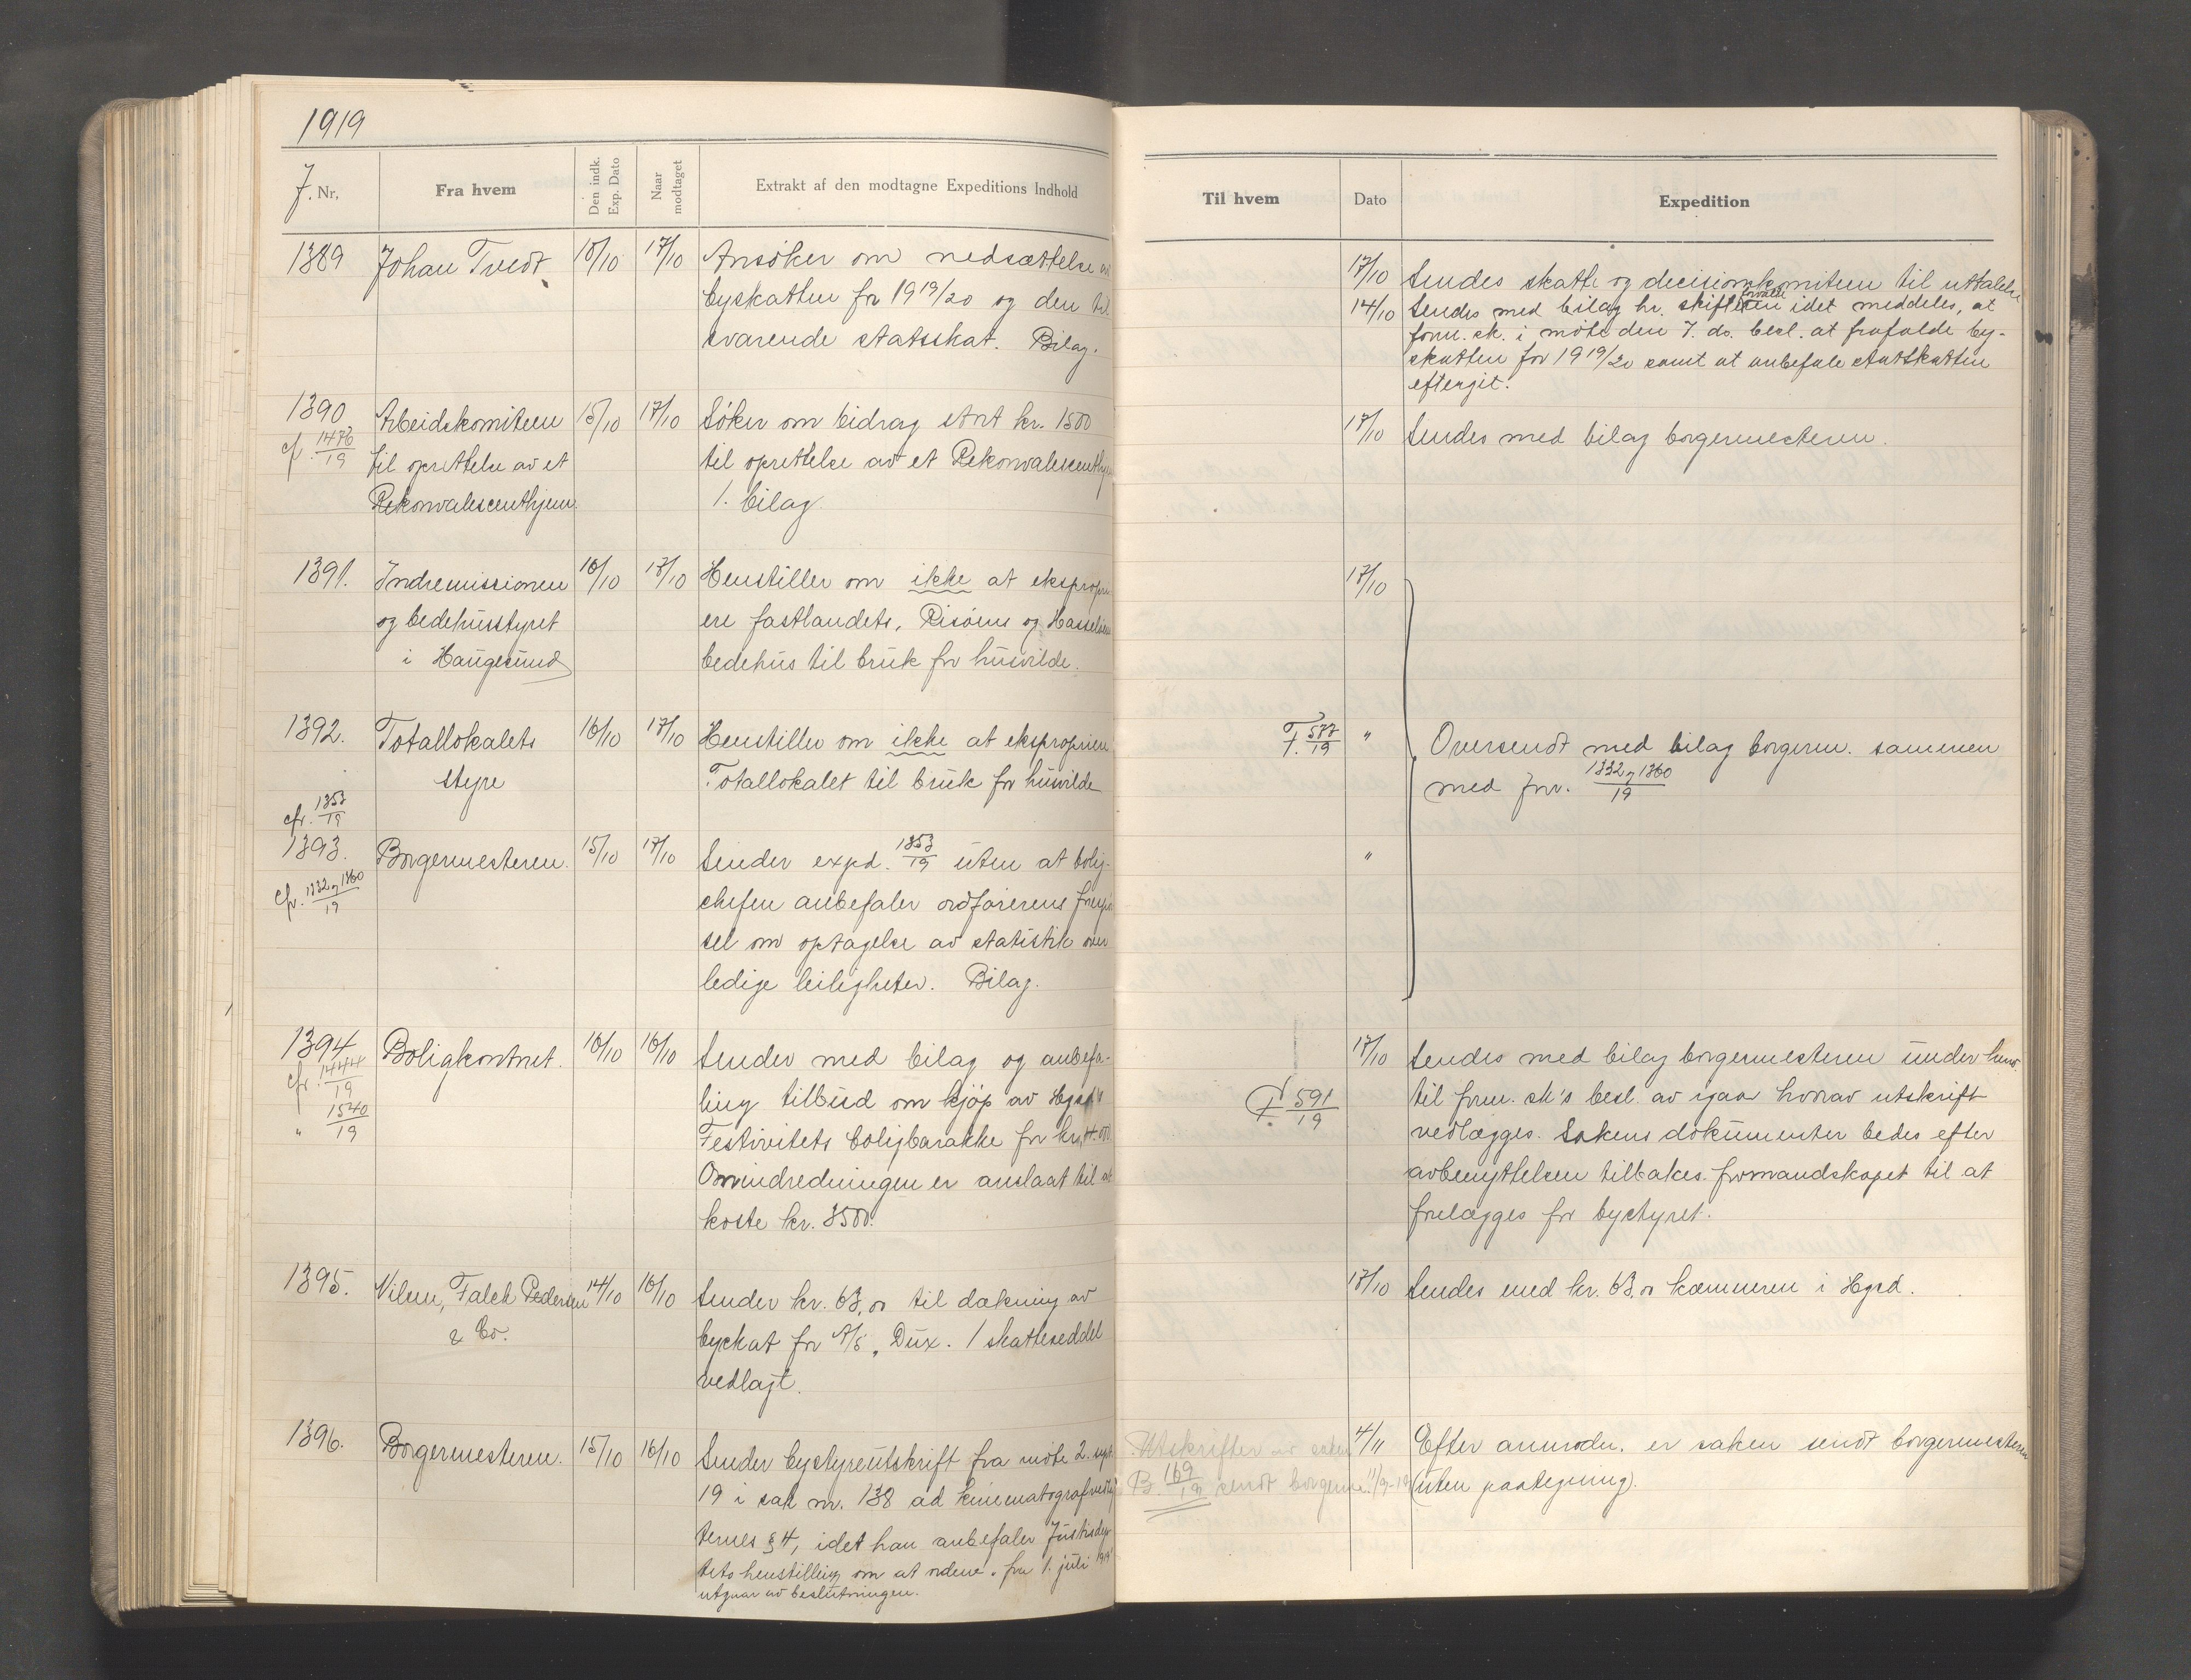 1919
J. Nr.
Fra hvem
Den indk. Exp. Dato
Naar modtaget
Extrakt af den modtagne Expeditions Indhold
Til hvem
Dato
Expedition
1389 Johan Tvedt 15/10 17/10 Ansöker om nedsættelse
byskatten for 1919/20 og den til
svarende statsskat. Bilag.
17/10 Sendes skatte og decisionskomiteen til uttalelse
14/10 Sendes med bilag hr. idet meddeles, at
form. sk. i möte den 7. ds. besl. at frafalde by-
skatten for 1919/20 samt at anbefale statskatten
eftergit.
1390 Arbeidskomiteen 15/10 17/10 Söker om bidrag stort kr. 1500
cf. 1476/19 til oprettelse av et til oprettelse av et Rekonvalescenthjem
Rekonvalescenthjem. 1. bilag.
17/10 Sendes med bilag borgermesteren.
1391. Indremissionen 16/10 17/10 Henstiller om ikke at ekspropri
og bedehusstyret ere fastlandets, Risöens og Hasselöens
i Haugesund bedehus til bruk for husvilde.
17/10
1392. Totallokalets 16/10 17/10 Henstiller om ikke at ekspropriere
styre Totallokalet til bruk for husvilde
F. 587/19 " Oversendt med bilag borgerm. sammen
med jnr. 1332 og 1360/19
cfr. 1353/19
1393. Borgermesteren. 15/10 17/10 Sender expd. 1353/19 uten at bolig-
cfr. 1332 og 1360/19 chefen anbefaler ordförerens forespör
sel om optagelse av statistik over
ledige leiligheter. Bilag.
"
1394 Boligkontoret. 16/10 16/10 Sender med bilag og anbefa-
cfr. 1444/19 ling tilbud om kjöp av Hgsd's
" 1540/19 Festivitets boligbarakke for kr.
Omindredningen er anslaat til at
koste kr. 3500.
17/10 Sendes med bilag borgermesteren under henv.
F. 591/19 til form. sk's besl. av igaar hvorav utskrift
vedlægges. Sakens dokumenter bedes efter
avbenyttelsen tilbakes. formandskapet til at
forelægges for bystyret.
1395. Nilsen, Falck Pedersen 14/10 16/10 Sender kr. 63,00 til dækning av
& Co. byskat for A/S „Dux. 1 skatteseddel
vedlagt.
17/10 Sendes med kr. 63,00 kæmneren i Hgsd.
1396. Borgermesteren. 15/10 16/10 Sender bystyreutskrift fra möte 2. sept.
19 i sak nr. 138 ad kinematografvedtæg
ternes § 4, idet han anbefaler Justisdep
tets henstilling om at ordene „fra 1. juli 1919"
utgaar av beslutningen.
Utskrifter av saken
B 169/19 sendt borgerm. 11/9-19
4/11 Efter anmodn. er saken sendt borgermesteren
(uten paategning).